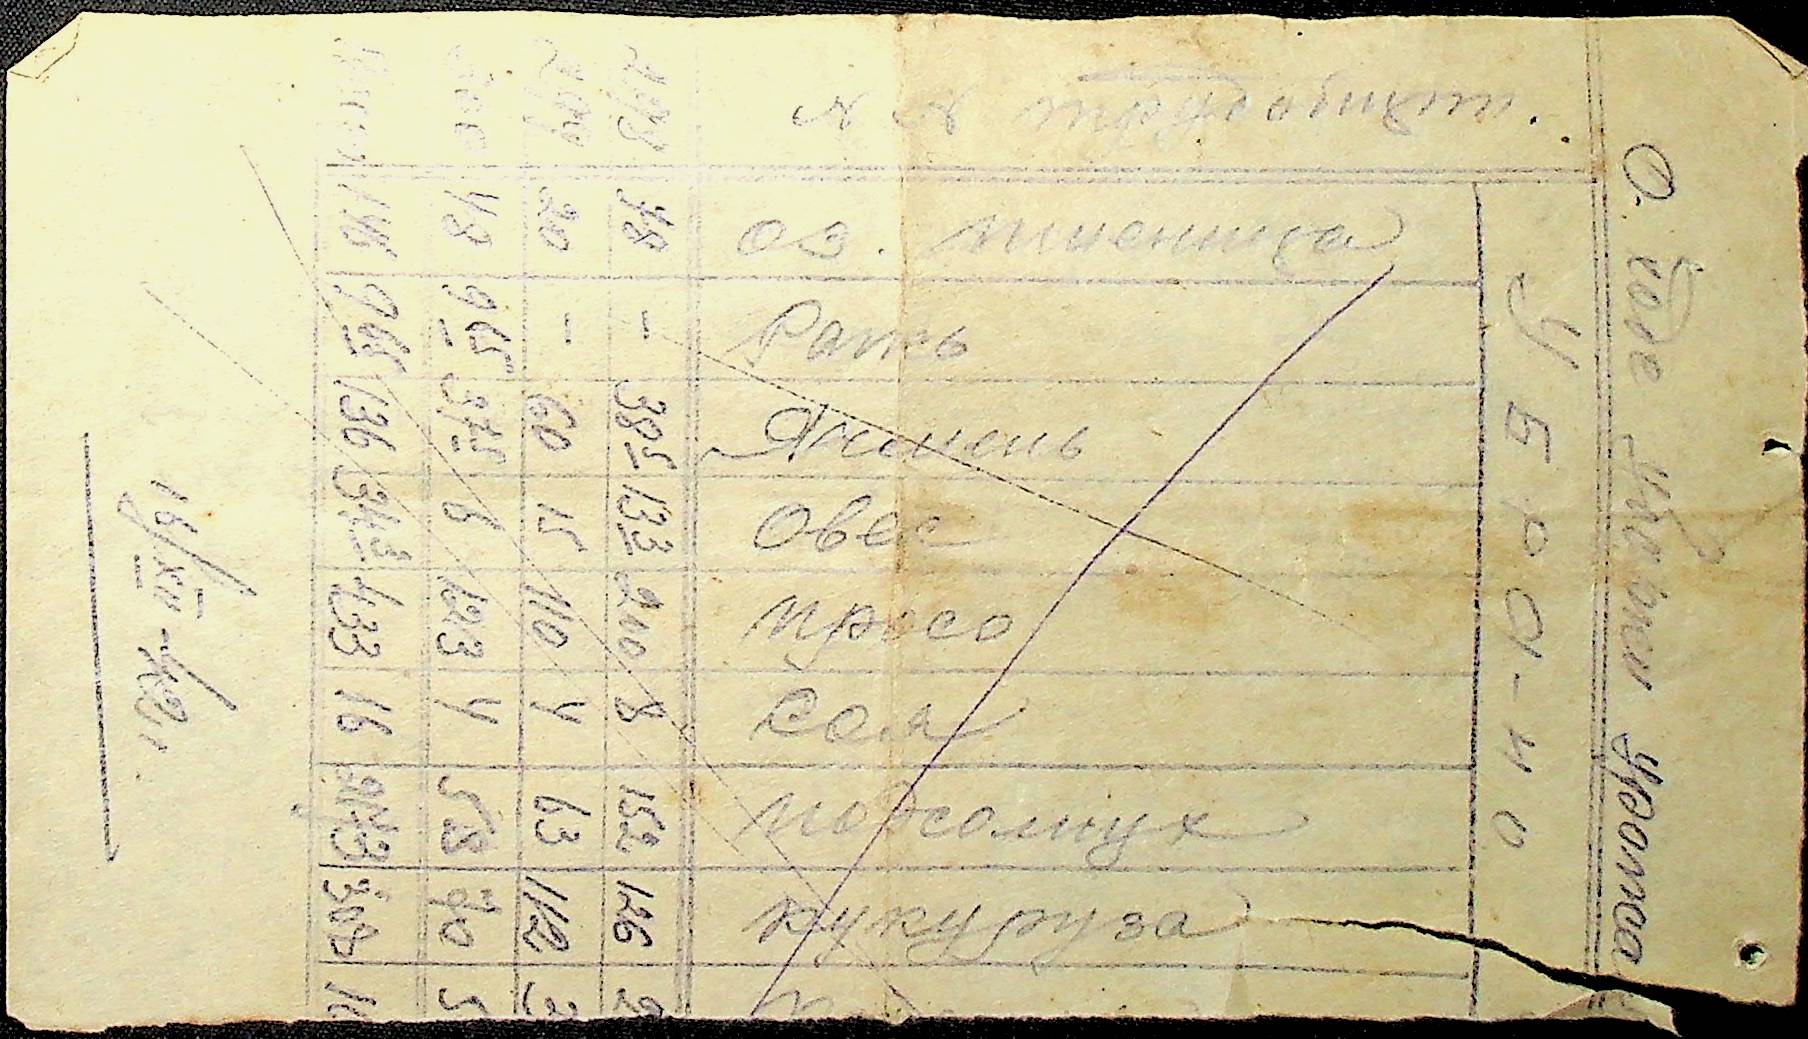 О ходе уборки урожая
УБРА-НО
№ №
оз. пшеница Рожь Ячмень Овес просо Соя подсолнух кукуруза
78 - 38,5 13,3 200 8 152 126
20 - 60 15 110 4 63 112
48 96,5 37,5 6 123 4 58 70
146 96,5 136 34,3 433 16 273 308
16/XII-42г.